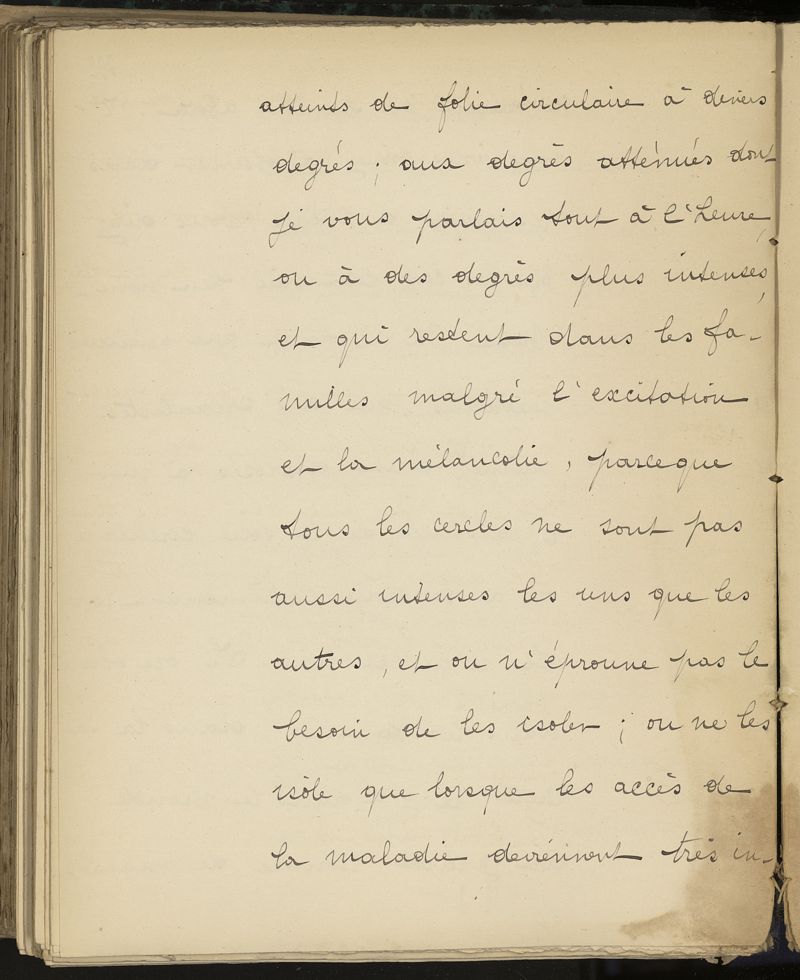 atteints de folie circulaire à divers
degrés ; aux degrés atténués dont
je vous parlais tout à l'heure,
ou à des degrés plus intenses,
et qui restent dans les fa-
milles malgré l'excitation
et la mélancolie, parceque
tous les cercles ne sont pas
aussi intenses les uns que les
autres, et on n'éprouve pas le
besoin de les isoler ; on ne les
isole que lorsque les accès de
la maladie deviennent très in-